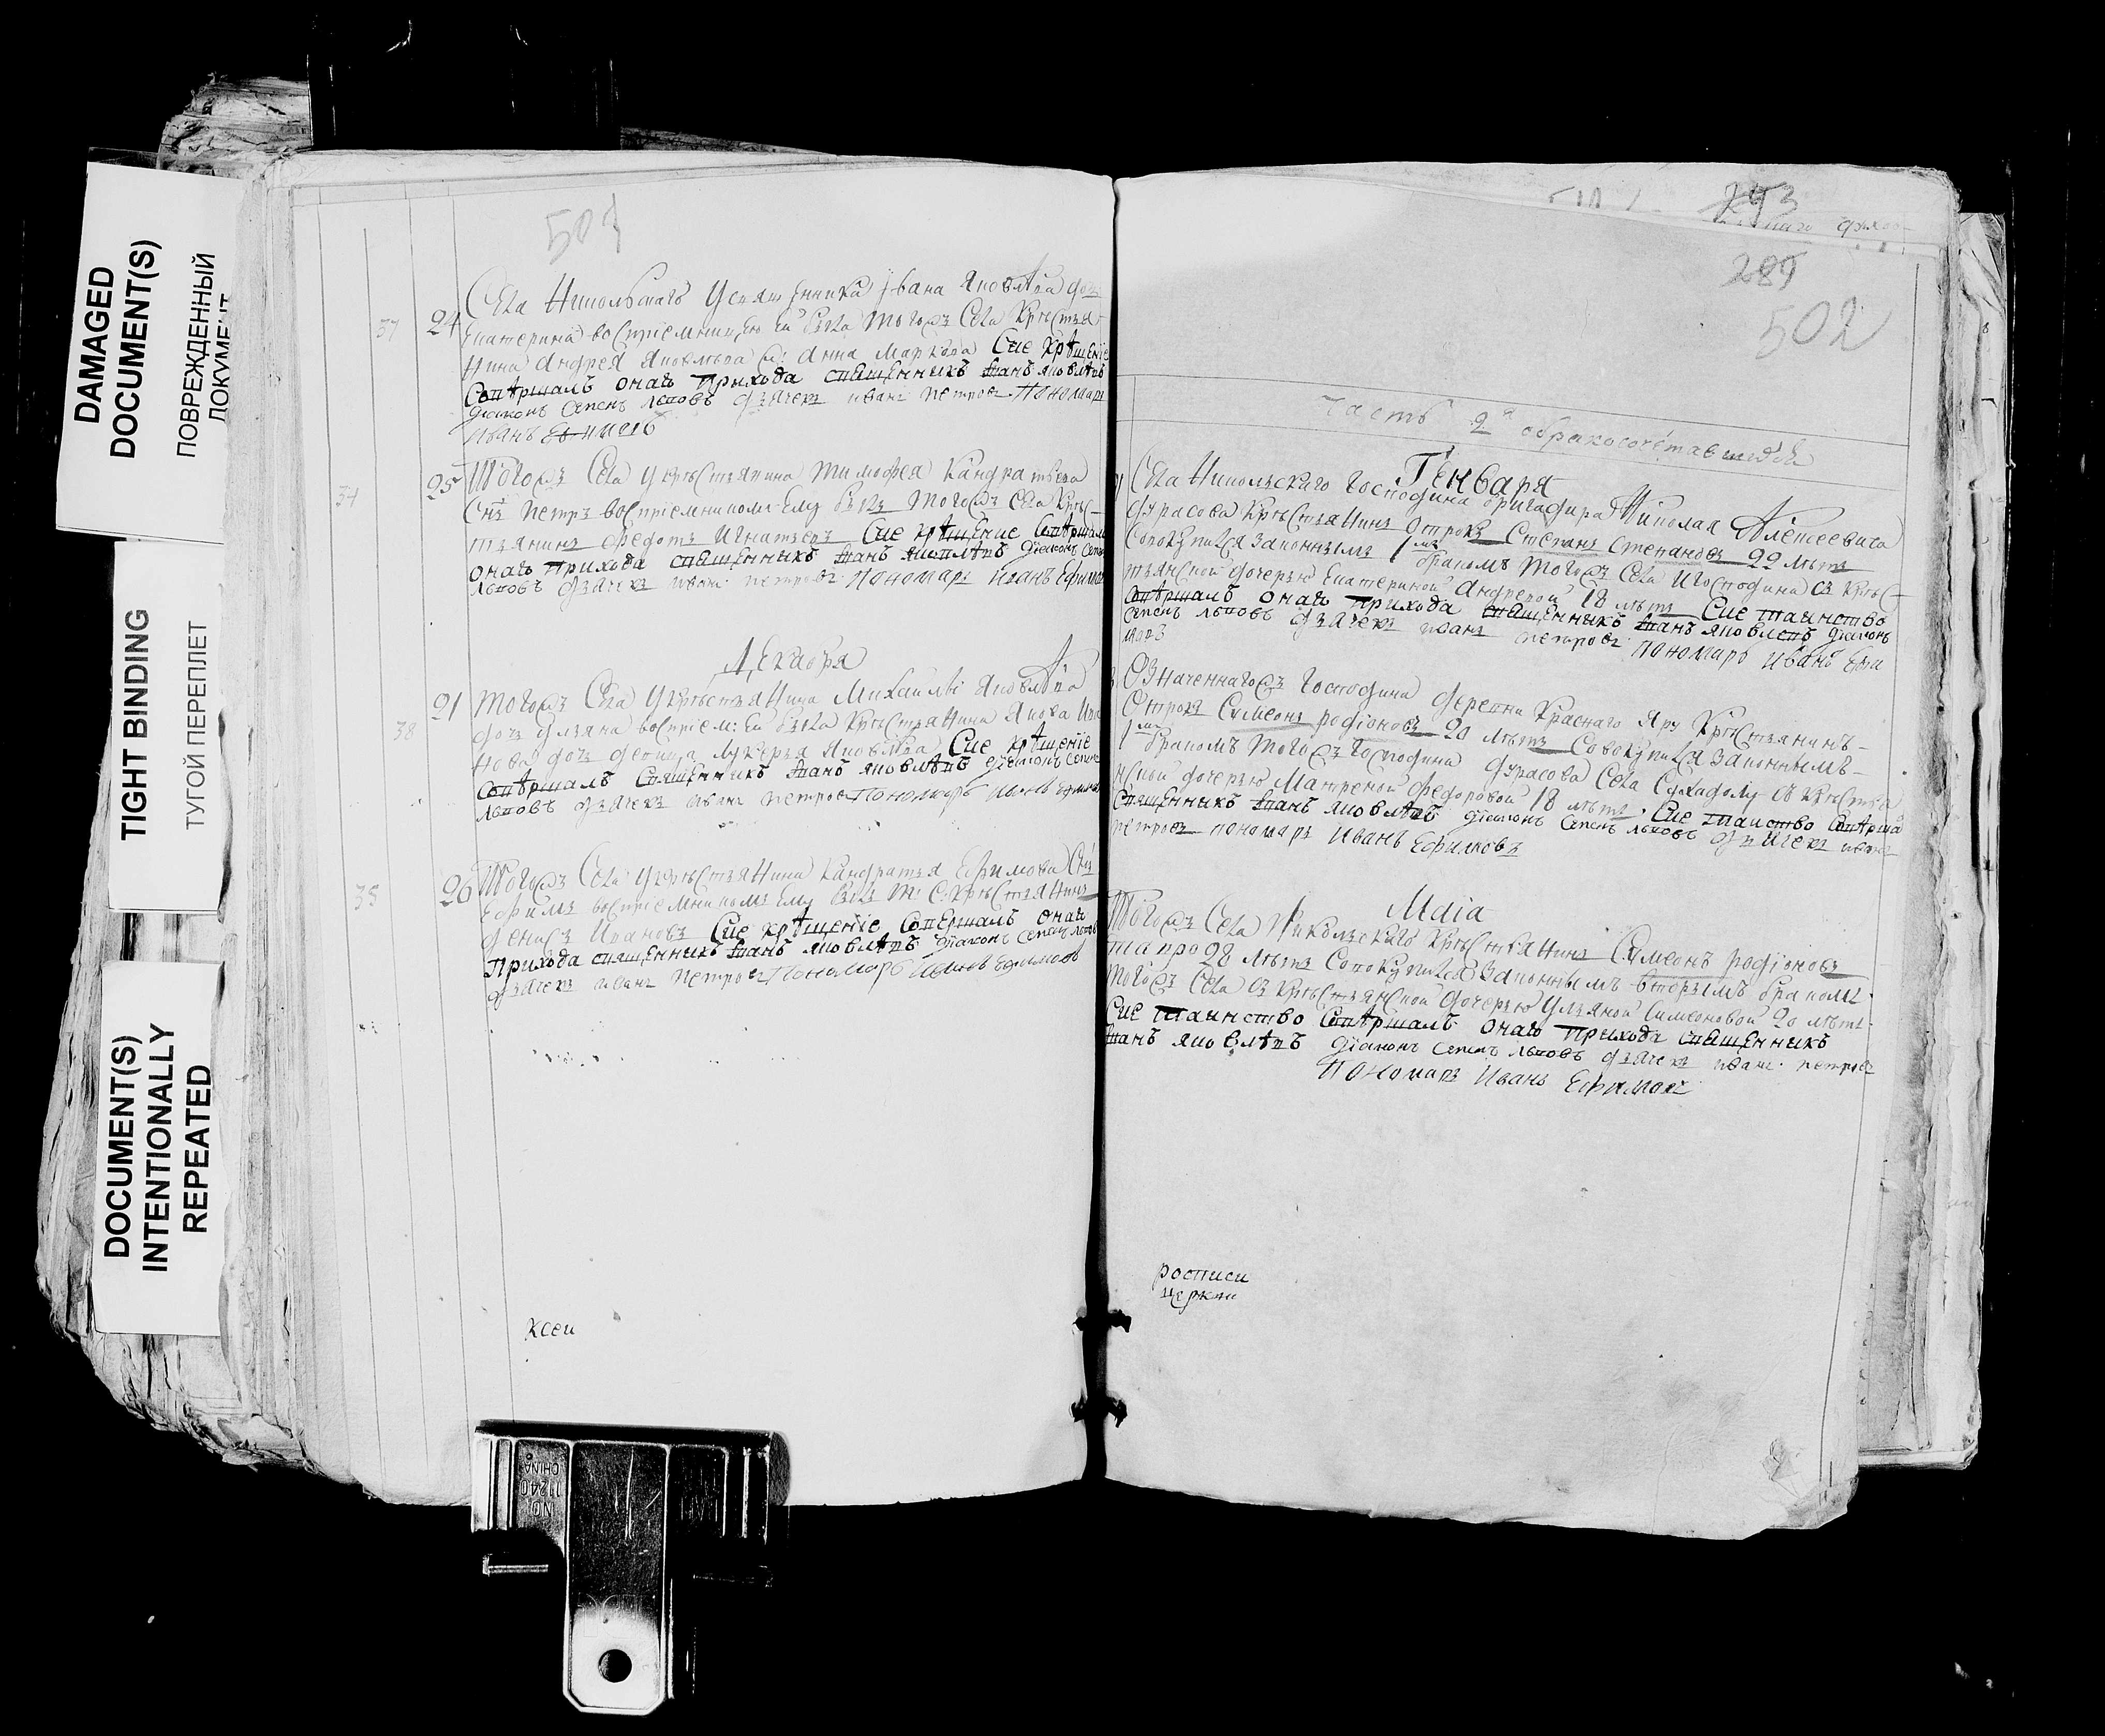 DAMAGED
DOCUMENT(S)
ПОВРЕЖДЕННЫЙ
ДОКУМЕНТ
TIGHT BINDING
ТУГОЙ ПЕРЕПЛЕТ
DOCUMENT(S)
INTENTIONALLY
REPEATED
501
37 24 Села Никольскаго у священника Iвана Яковлева дочь
Екатерина восприемницею ей была тогожъ села крестья-
нина Андрея Яковлева Анна Маркова Сие крещенiе
Совершалъ онаго прихода священникъ Iоанъ Яковлевъ
дiаконъ Семенъ Львовъ дьячекъ иванъ петровъ Пономарь
Иванъ Ефимовъ
25 Тогожъ Села у крестьянина Тимофея Кандратьева
Снъ петръ восприемникомъ ему былъ тогожъ Села Крес-
тьянинъ Федотъ Игнатьевъ Сие крещение Совершалъ
онаго Прихода священникъ Iоанъ Яковлевъ дiаконъ
Львовъ дьячекъ иванъ петровъ Пономарь Иванъ Ефимовъ
Декабря
38 21 Тогожъ Села у крестьянина Михаилы Яковлева
дочь Ульяна восприем: ей была крестьянина Якова
нова дочь девица Лукерья Яковлева Сие крещенiе
Совершалъ Священникъ Iоанъ Яковлевъ дiаконъ Семенъ
Львовъ дьячекъ Иванъ петровъ Пономарь Иванъ Ефимовъ
35 26 Тогожъ Села у крестьянина Кандратья Ефимова Снъ
Ефимъ восприемникомъ ему былъ т: С: крестьянинъ
Денисъ Ивановъ Сие крещенiе Совершалъ онаго
Прихода священникъ Iоанъ Яковлевъ дiаконъ Семенъ Львовъ
дьячекъ иванъ петровъ Пономарь Иванъ Ефимовъ
ксеи
NO.
11240
CHINA
243
289
502
часть 2я о бракосочетавшихся
Генваря
Села Никольскаго Господина бригадира Николая Алексеевича
Дурасова крестьянинъ отрокъ Степанъ Степановъ 22 летъ
Совокупился законнымъ 1мъ бракомъ тогожъ Села и господина съ крес-
тьянской дочерью Екатериной Андревой 18 летъ Сие таинство
Совершалъ онаго прихода священникъ Iоанъ Яковлевъ дiаконъ
Семенъ Львовъ дьячекъ иванъ петровъ пономарь Иванъ Ефи
мовъ
Означеннагожъ Господина деревни Краснаго Яру крестьянинъ
Отрокъ Сумеонъ родiоновъ 20 летъ Совокупился законнымъ
1мъ бракомъ тогожъ Господина Дурасова Села Суходолу съ крестья
нской дочерью Матреной Федоровой 18 летъ. Сие таинство Соверша
Священникъ Iоанъ Яковлевъ дiаконъ Семенъ Львовъ дьячекъ иванъ
петровъ пономарь Иванъ Ефимовъ
Маiа
Тогожъ Села Никольскаго крестьянинъ Сумеонъ родiоновъ
28 летъ Совокупился законнымъ вторымъ бракомъ
тогожъ Села съ крестьянской дочерью Ульяной Симеоновой 20 летъ
Сие таинство Совершалъ онаго Прихода священникъ
Iоанъ Яковлевъ дiаконъ Семенъ Львовъ дьячекъ иванъ петровъ
пономарь Иванъ Ефимовъ
росписи
церкви